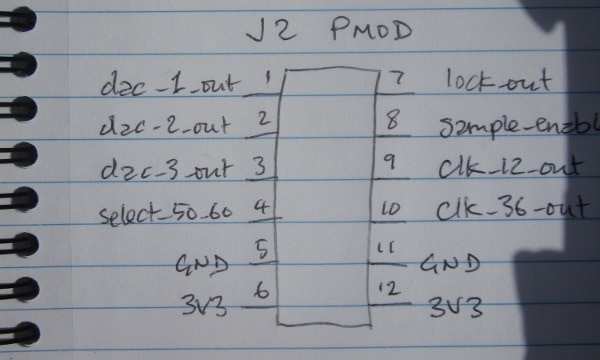 J2 PMOD
dac_1_out 1 7 lock_out
dac_2_out 2 8 sample_enabl
dac_3_out 3 9 clk_12_out
select_50_60 4 10 clk_36_out
GND 5 11 GND
3V3 6 12 3V3